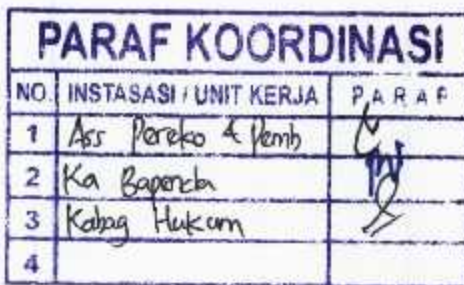 PARAF KOORDINASI
NO. INSTASASI / UNIT KERJA PARAF
1 Ass Pereko & Pemb
2 Ka Bapenda
3 Kabag Hukum
4